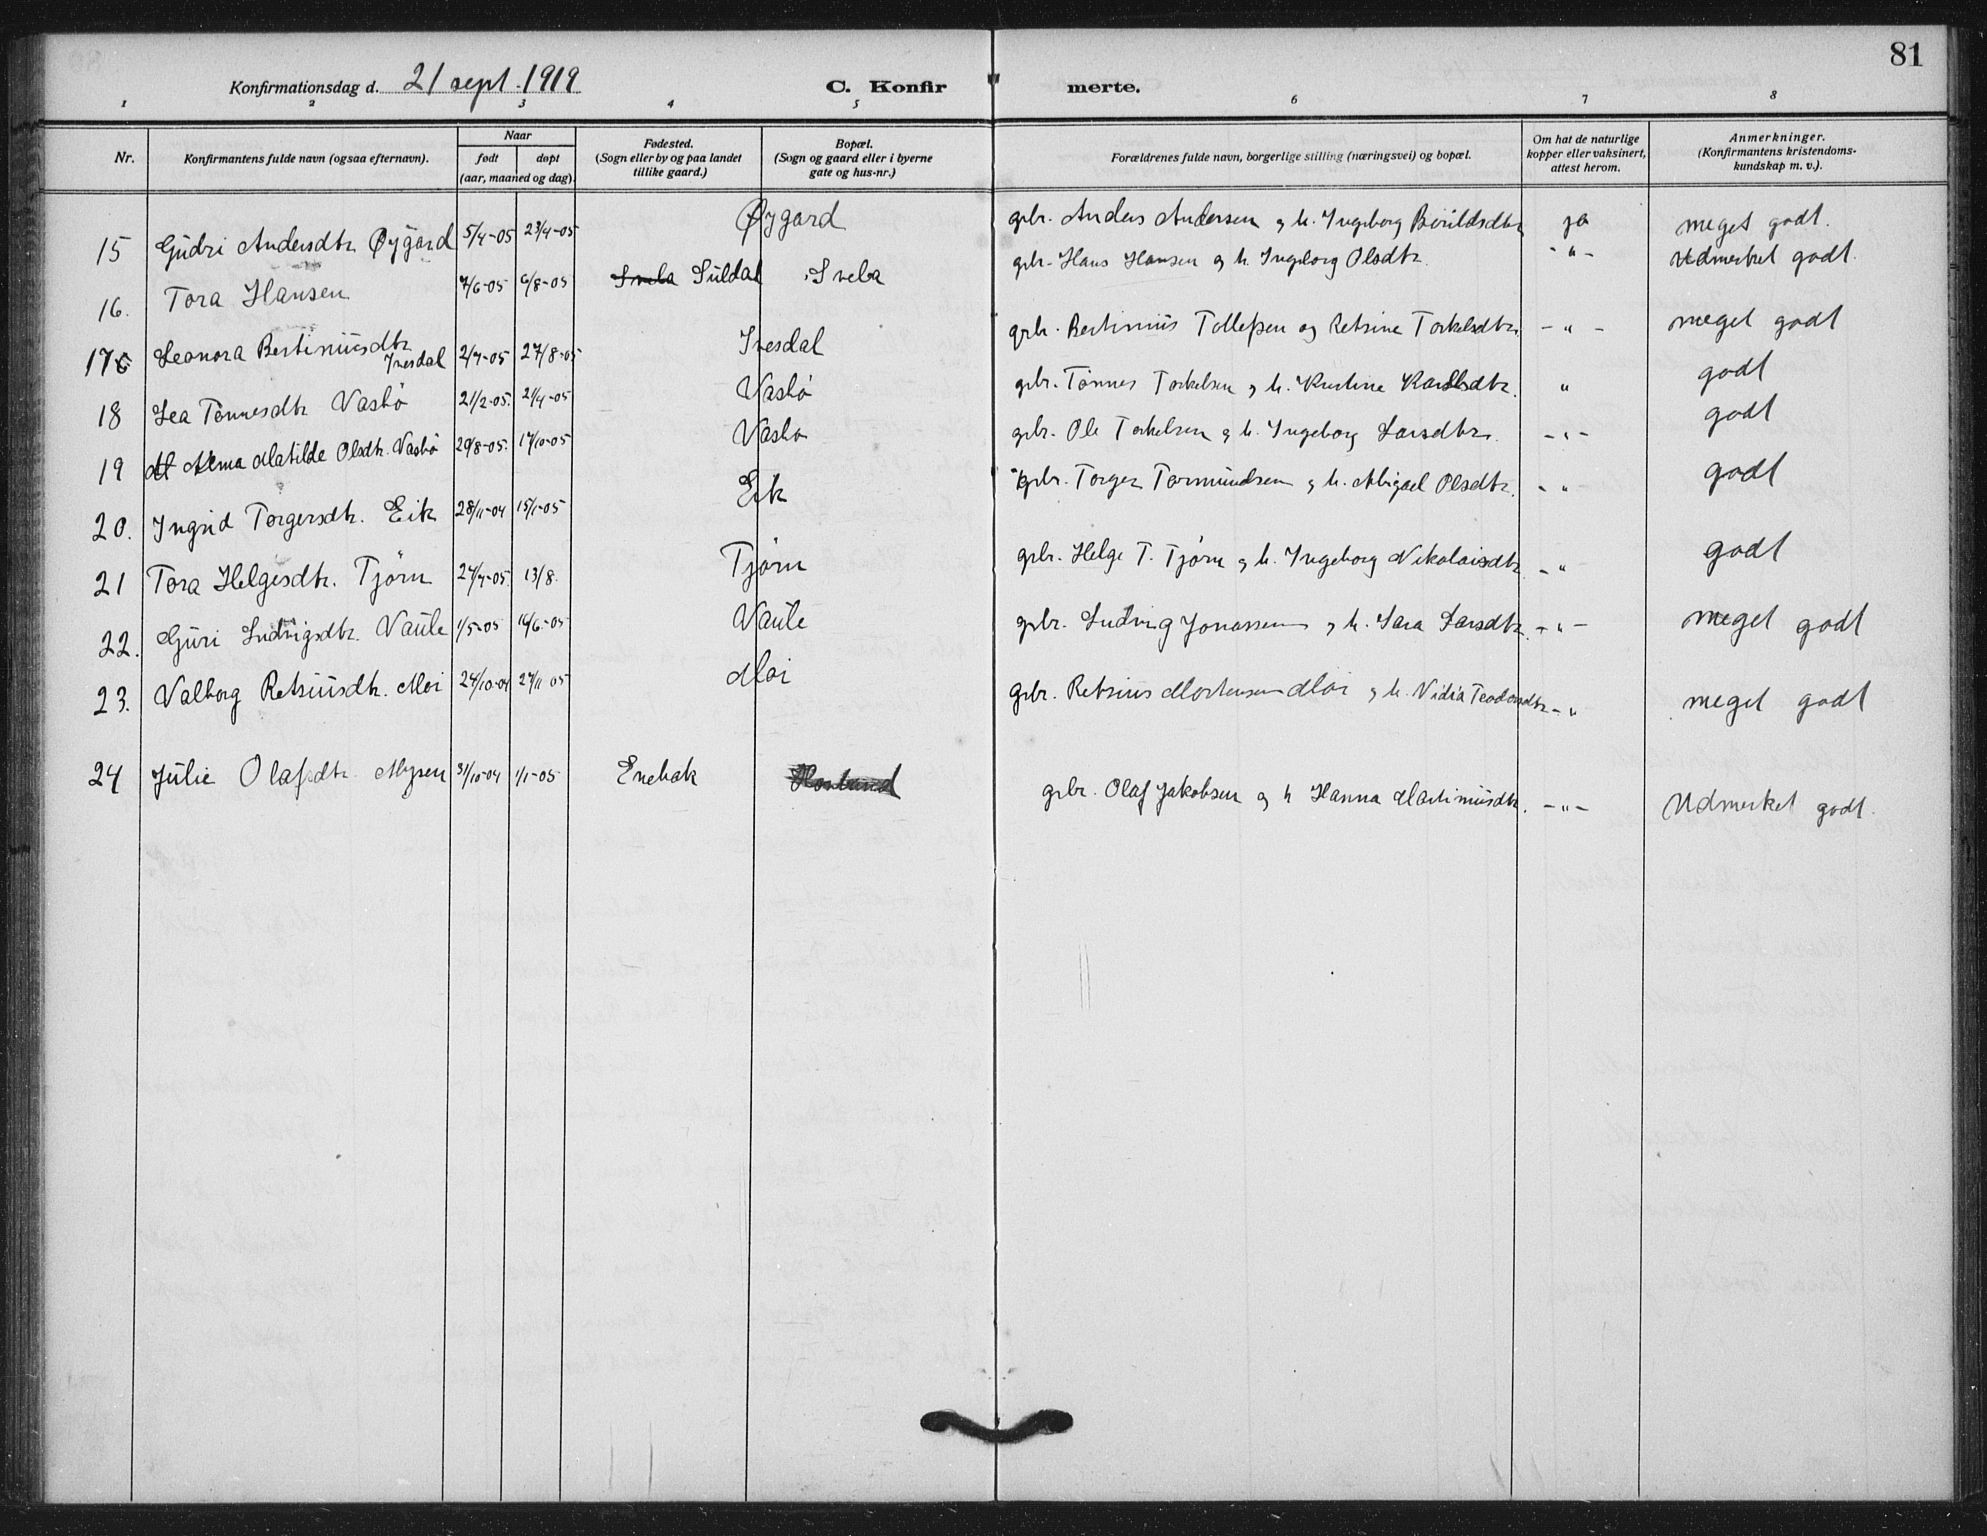 81
Konfirmationsdag d. 21 sept. 1919 C. Konfir merte.
1 2 3 4 5 6 7 8
Nr. Konfirmantens fulde navn (ogsaa efternavn). Naar født døpt (aar, maaned og dag). Fødested. (Sogn eller by og paa landet tillike gaard.) Bopæl. (Sogn og gaard eller i byerne gate og hus-nr.) Forældrenes fulde navn, borgerlige stilling (næringsvei) og bopæl. Om hat de naturlige kopper eller vaksinert, attest herom. Anmerkninger. (Konfirmantens kristendoms-kundskap m. v.).
15 Gudri Andersdtr. Øygard 5/4-05 23/4-05 Øygard grbr. Anders Andersen og h. Ingeborg Berildsdtr ja meget godt.
16. Tora Hansen 7/6-05 6/8-05 Sveba Suldal Sveba grbr. Hans Hansen og h. Ingeborg Olsdtr. -"- Udmerket godt.
17 Leonora Bertinusdtr Ivesdal 2/7-05 27/8-05 Ivesdal grbr. Bertinius Tollefsen og Retsine Torkelsdtr. -"- meget godt
18 Lea Tønnesdtr Vasbø 21/2-05. 2/4-05 Vasbø grbr. Tønnes Torkelsen og h. Kristine Karlsdtr. " godt
19 Alma Matilde Olsdtr. Vasbø 29/8-05. 17/10-05 Vasbø grbr. Ole Torkelsen og h. Ingeborg Larsdtr. -"- godt
20. Ingrid Torgersdtr. Eik 28/11-04 15/1-05 Eik grbr. Torger Tormundsen og h. Abigael Olsdtr. -" godt
21 Tora Helgesdtr. Tjørn 27/7-05. 13/8. Tjørn grbr. Helge T. Tjørn og h. Ingeborg Nikolaisdtr. -" godt
22. Guri Ludvigsdtr. Vaule 1/5-05 /6-05 Vaule grbr. Ludvig Jonassen og h. Sara Larsdtr. -"- meget godt
23. Valborg Retsiusdtr. Moi 24/10-04 27/11 05 Moi grbr. Retsius Mortensen Moi og h. Vidia Teodorsdtr -" meget godt
24 Julie Olafsdtr. Mysen 31/10-04 1/1-05 Enebak grbr. Olaf Jakobsen og h Hanna Martinusdtr. -"- Udmerket godt.